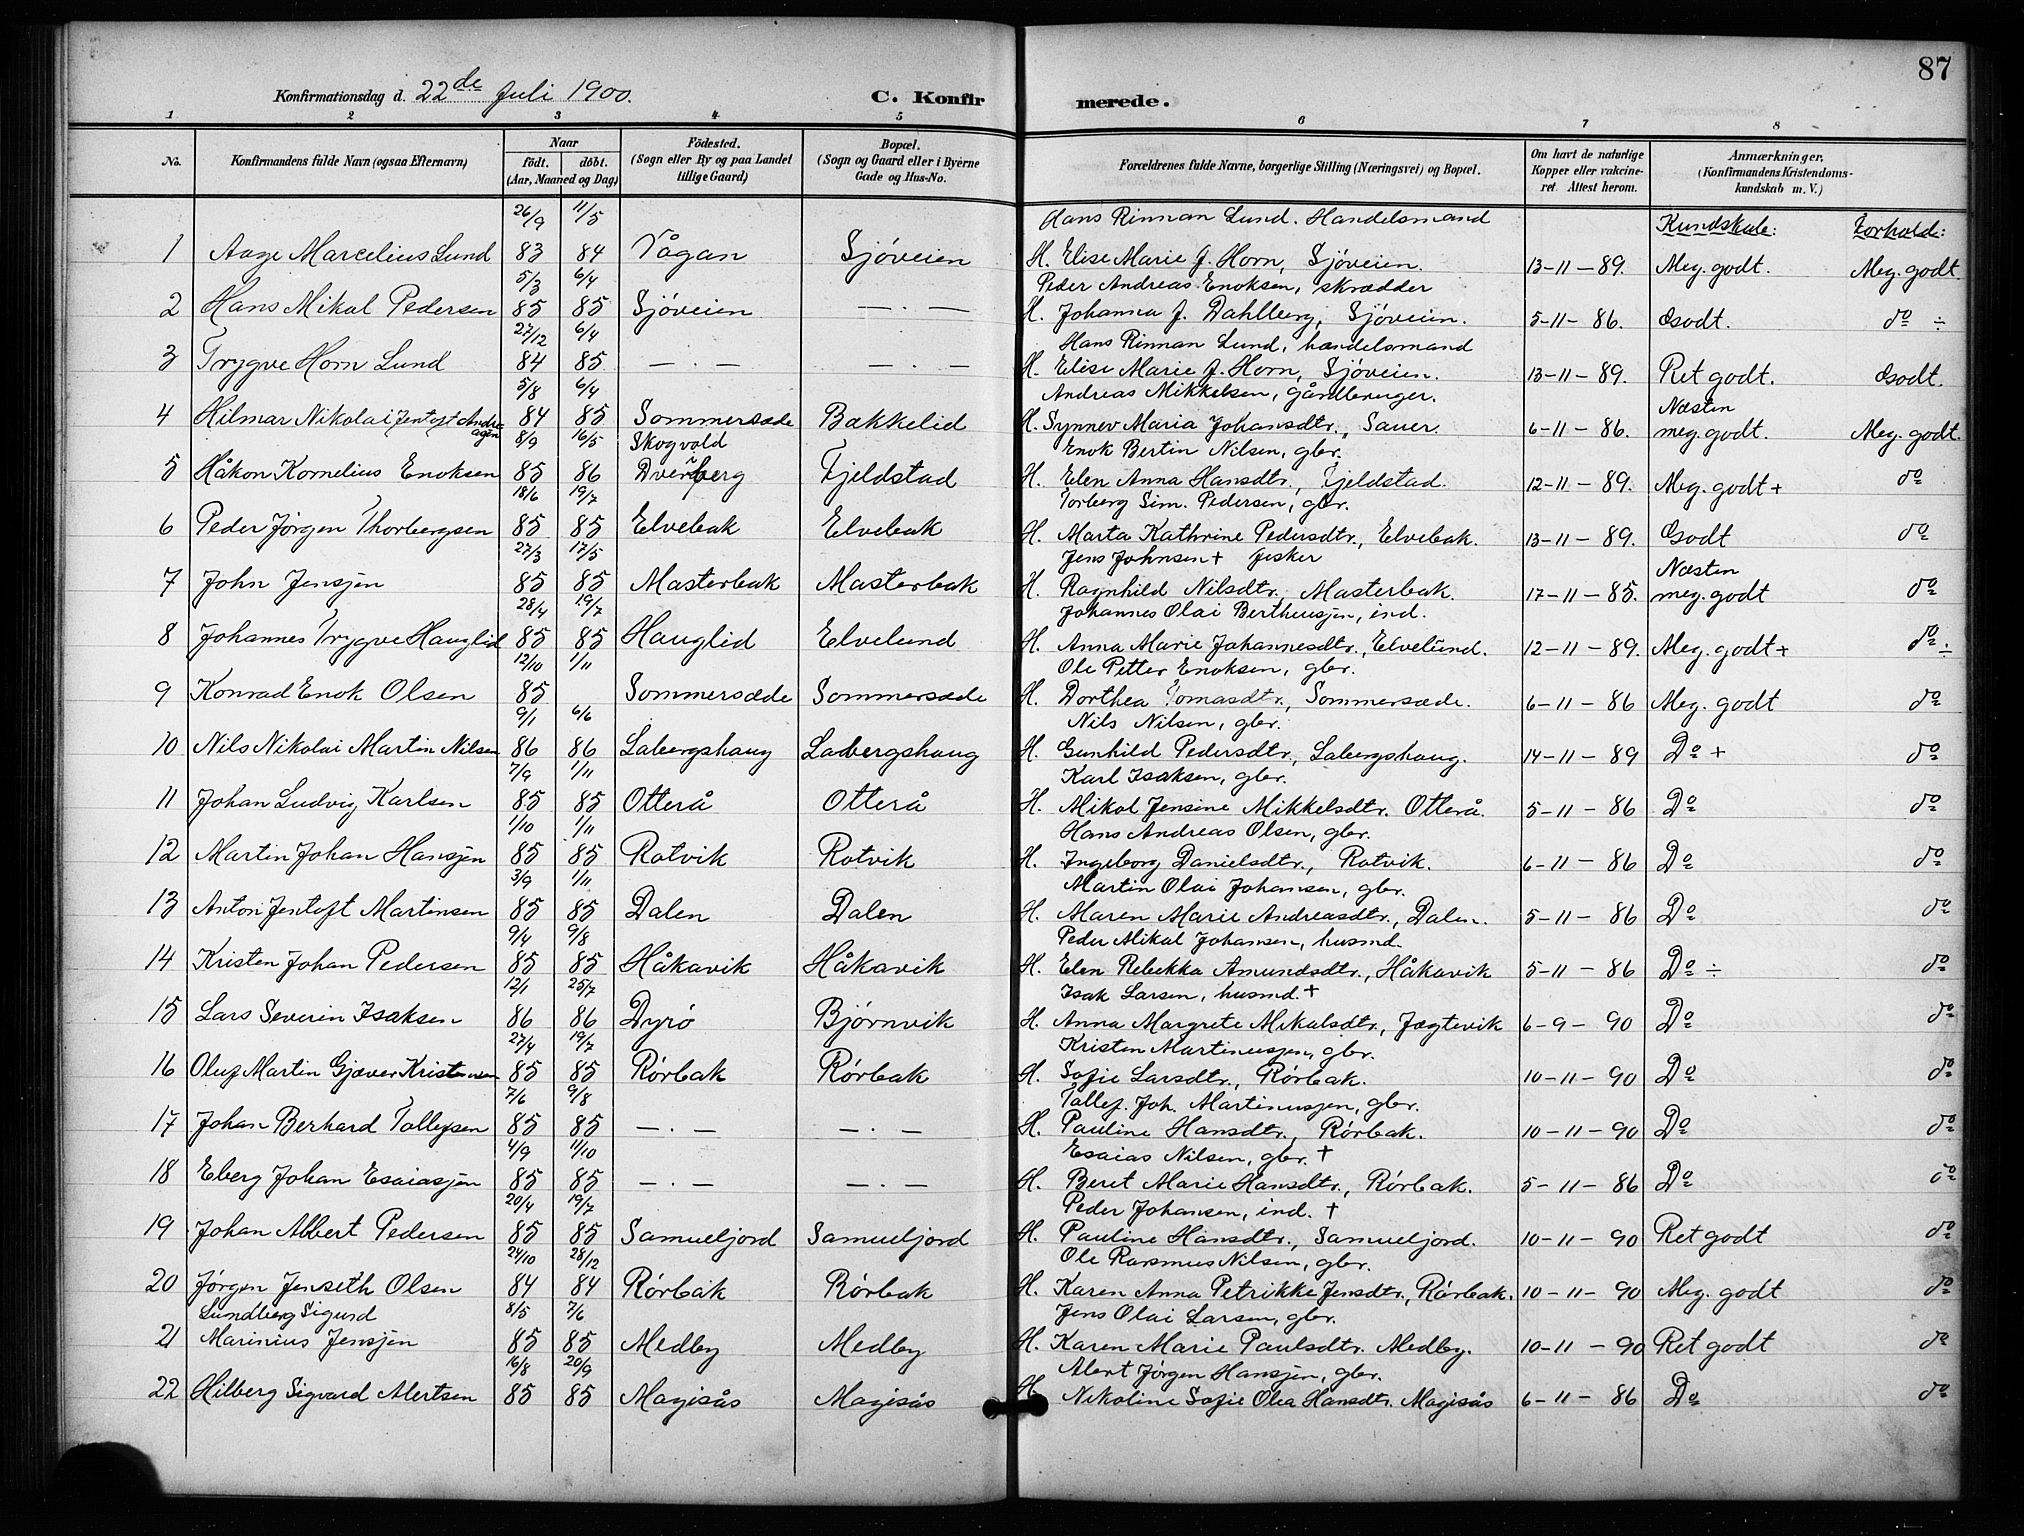 87
Konfirmationsdag d. 22de Juli 1900. C. Konfirmerede.
1 2 3 4 5 6 7 8
No. Konfirmandens fulde Navn (ogsaa Efternavn) Naar födt. döbt. (Aar, Maaned og Dag) Födested. (Sogn eller By og paa Landet tillige Gaard) Bopæl. (Sogn og Gaard eller i Byerne Gade og Hus-No. Forældrenes fulde Navne, borgerlige Stilling (Næringsvei) og Bopæl. Om havt de naturlige Kopper eller vakcineret. Attest herom. Anmærkninger. (Konfirmandens Kristendomskundskab m. V.)
26/9 11/5 Hans Rinnan Lund. Handelsmand Kundskab: Forhold:
1 Aage Marcelius Lund 83 84 Vågan Sjøveien H. Elise Marie f. Horn, Sjøveien. 13-11-89. Meg. godt. Meg. godt
5/3 6/4 Peder Andreas Enoksen, skrædder
2 Hans Mikal Pedersen 85 85 Sjøveien — . — H. Johanna f. Dahlberg, Sjøveien. 5-11-86. Godt. do ÷
27/12 6/4 Hans Rinnan Lund, handelsmand
3 Trygve Horn Lund 84 85 — . — — . — H. Elise Marie f. Horn, Sjøveien. 13-11-89. Ret godt. Godt.
5/8 6/4 Andreas Mikkelsen, gårdbruger. Næsten
4 Hilmar Nikolai Jentoft Andreasen 84 85 Sommersæde Bakkelid H. Synnev Maria Johansdtr., Sauer 6-11-86. meg. godt. Meg. godt.
8/9 16/5 Skogvold Enok Bertin Nilsen, gbr.
5 Håkon Kornelius Enoksen 85 86 Dverberg Fjeldstad H. Elen Anna Hansdtr., Fjeldstad. 12-11-89. Meg. godt + do
18/6 19/7 Torberg Sim. Pedersen, gbr.
6 Peder Jørgen Thorbergsen 85 85 Elvebak Elvebak H. Marta Kathrine Pedersdtr., Elvebak. 13-11-89. Godt do
27/3 17/5 Jens Johnsen + fisker Næsten
7 John Jensen 85 85 Masterbak Masterbak H. Ragnhild Nilsdtr., Masterbak. 17-11-85. meg. godt do
28/4 19/7 Johannes Olai Berthusen, ind.
8 Johannes Trygve Hauglid 85 85 Hauglid Elvelund H. Anna Marie Johannesdtr., Elvelund. 12-11-89. Meg. godt + do ÷
12/10 1/11 Ole Petter Enoksen, gbr.
9 Konrad Enok Olsen 85 Sommersæde Sommersæde H. Dorthea Tomasdtr., Sommersæde. 6-11-86 Meg. godt do
9/1 6/6 Nils Nilsen, gbr.
10 Nils Nikolai Martin Nilsen 86 86 Labergshaug Labergshaug H. Gunhild Pedersdtr., Labergshaug. 14-11-89 Do + do
7/9 1/11 Karl Isaksen, gbr.
11 Johan Ludvig Karlsen 85 85 Otterå Otterå H. Mikal Jensine Mikkelsdtr. Otterå. 5-11-86 Do do
1/10 1/11 Hans Andreas Olsen, gbr.
12 Martin Johan Hansen 85 85 Rotvik Rotvik H. Ingeborg Danielsdtr., Rotvik. 6-11-86 Do do
3/9 1/11 Martin Olai Johansen, gbr.
13 Anton Jentoft Martinsen 85 85 Dalen Dalen H. Maren Marie Andreasdtr., Dalen. 5-11-86 Do do
9/4 9/8 Peder Mikal Johansen, husmd.
14 Kristen Johan Pedersen 85 85 Håkavik Håkavik H. Elen Rebekka Amundsdtr., Håkavik 5-11-86 Do ÷ do
12/1 25/7 Isak Larsen, husmd. +
15 Lars Severin Isaksen 86 86 Dyrø Bjørnvik H. Anna Margrete Mikalsdtr., Jægtevik 6-9-90 Do do
27/4 19/7 Kristen Martinusen, gbr.
16 Oluf Martin Gjæver Kristensen 85 85 Rørbak Rørbak H. Sofie Larsdtr., Rørbak. 10-11-90 Do do
7/6 9/8 Tollef. Joh. Martinusen, gbr.
17 Johan Berhard Tollefsen 85 85 — . — — . — H. Pauline Hansdtr., Rørbak. 10-11-90 Do do
4/9 11/10 Esaias Nilsen, gbr. +
18 Eberg Johan Esaiasen 85 85 — . — — . — H. Beret Marie Hansdtr., Rørbak. 5-11-86 Do do
20/4 19/7 Peder Johansen, ind. +
19 Johan Albert Pedersen 85 85 Samueljord Samueljord H. Pauline Hansdtr., Samueljord. 10-11-90 Ret godt do
24/10 28/12 Ole Rasmus Nilsen, gbr.
20 Jørgen Jenseth Olsen 84 84 Rørbak Rørbak H. Karen Anna Petrikke Jensdtr., Rørbak. 10-11-90 Meg. godt do
Lundberg Sigurd 8/5 7/6 Jens Olai Larsen, gbr.
21 Marinius Jensen 85 85 Medby Medby H. Karen Marie Paulsdtr. Medby. 10-11-90 Ret godt do
16/8 20/9 Alert Jørgen Hansen, gbr.
22 Hilberg Sigvard Alertsen 85 85 Magisås Magisås H. Nikoline Sofie Olea Hansdtr. Magisås 6-11-86 Do do